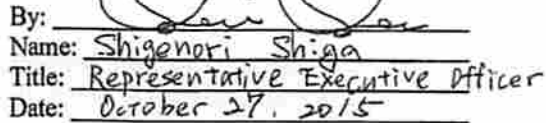 By:
Name: Shigenori Shiga
Title: Representative Executive Officer
Date: October 27, 2015